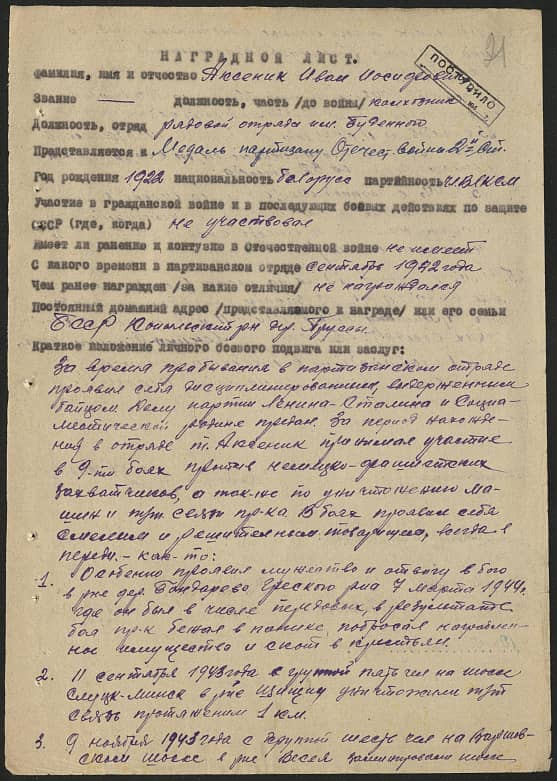 31
ПОСТУПИЛО
НАГРАДНОЙ ЛИСТ.
Фамилия, имя и отчество Аксеник Иван Иосифович
Звание — должность, часть /до войны/ колхозник
Должность, отряд рядовой отряда им. Буденного
Представляется к Медаль партизану Отечест. война 2й ст.
Год рождения 1922 национальность белорус партийность чл ВЛКСМ
Участие в гражданской войне и в последующих боевых действиях по защите
СССР (где, когда) не участвовал
Имеет ли ранение и контузию в Отечественной войне не имеет
С какого времени в партизанском отряде сентябрь 1942 года
Чем ранее награжден /за какие отличия/ не награждался
Постоянный домашний адрес /представляемого к награде/ или его семьи
БССР Копыльский р-н дер. Пруссы.
Краткое изложение личного боевого подвига или заслуг:
За время пребывания в партизанском отряде
проявил себя дисциплинированным, выдержанным
бойцом. Делу партии Ленина-Сталина и Социа-
листической родине предан. За период нахожде-
ния в отряде т. Аксеник принимал участие
в 9-ти боях против немецко-фашистских
захватчиков, а так-же по уничтожению ма-
шин и связи пр-ка. В боях проявил себя
смелым и решительным товарищем, всегда в
переди. - как-то:
1. Особенно проявил мужество и отвагу в бою
в р-не дер. Бондарево Греского р-на 7 марта 1944г.
где он был в числе передовых, в результате
боя пр-к бежал в панике, побросав награблен-
ное имущество и скот в крестьян.
2. 11 сентября 1943 года с группой пять чел на шоссе
Слуцк-Минск в р-не уничтожили
связь протяжением 1 км.
3. 9 ноября 1943 года с группой шесть чел на Варшав-
ском шоссе в р-не Весея заминировали шоссе